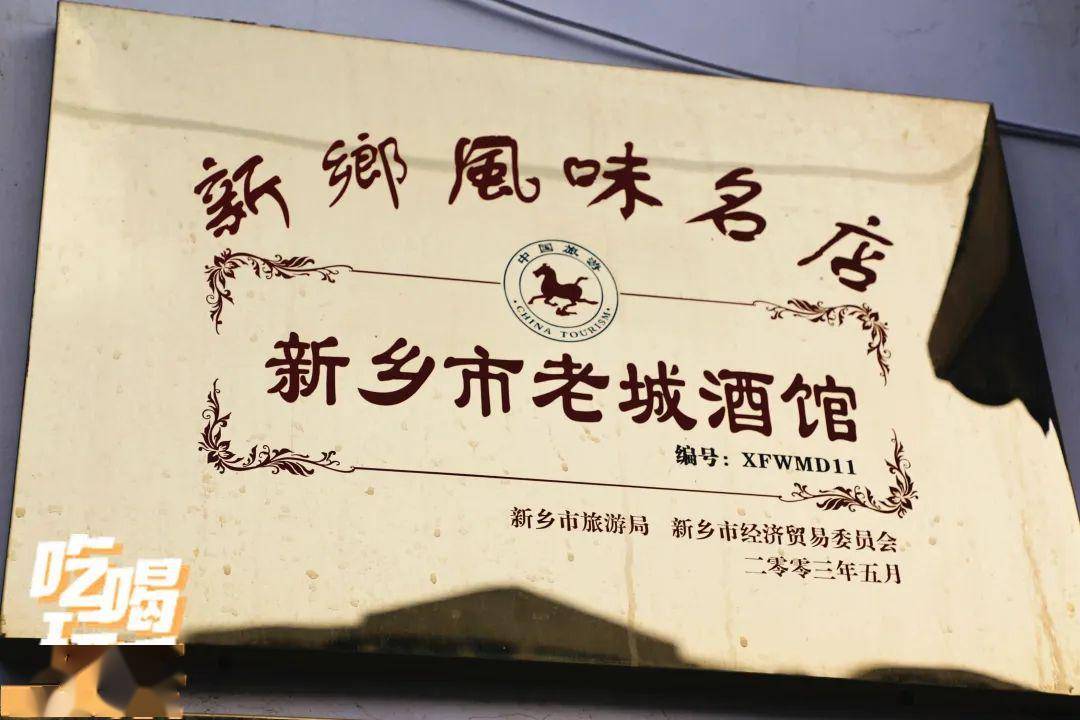 新鄉風味名店
中国旅游
CHINA TOURISM
新乡市老城酒馆
编号：XFWMD11
新乡市旅游局 新乡市经济贸易委员会
二零零三年五月
吃喝